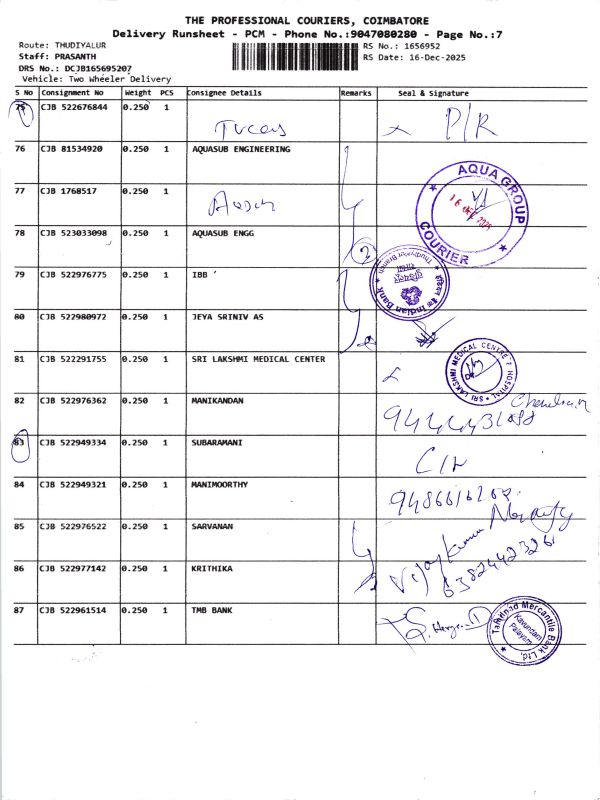 THE PROFESSIONAL COURIERS, COIMBATORE
Delivery Runsheet - PCM - Phone No.:9047080280 - Page No.:7
Route: THUDIYALUR
RS No.: 1656952
Staff: PRASANTH
RS Date: 16-Dec-2025
DRS No.: DCJB165695207
Vehicle: Two Wheeler Delivery
S No Consignment No Weight PCS Consignee Details Remarks Seal & Signature
75 CJB 522676844 0.250 1
P/R
76 CJB 81534920 0.250 1 AQUASUB ENGINEERING
77 CJB 1768517 0.250 1
AQUA GROUP
16 DEC 2025
COURIER
78 CJB 523033098 0.250 1 AQUASUB ENGG
79 CJB 522976775 0.250 1 IBB
Thudiyalur Branch
Indian Bank
80 CJB 522980972 0.250 1 JEYA SRINIV AS
81 CJB 522291755 0.250 1 SRI LAKSHMI MEDICAL CENTER
SRI LAKSHMI MEDICAL CENTRE & HOSPITAL
82 CJB 522976362 0.250 1 MANIKANDAN
83 CJB 522949334 0.250 1 SUBARAMANI
84 CJB 522949321 0.250 1 MANIMOORTHY
85 CJB 522976522 0.250 1 SARVANAN
Vijay Kumar
6382442326
86 CJB 522977142 0.250 1 KRITHIKA
87 CJB 522961514 0.250 1 TMB BANK
Tamilnad Mercantile Bank Ltd.
Kavundam Palayam